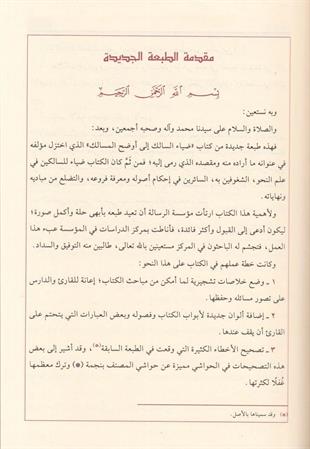 مقدمة الطبعة الجديدة
بسم الله الرحمن الرحيم
وبه نستعين:
والصلاة والسلام على سيدنا محمد وآله وصحبه أجمعين، وبعد:
فهذه طبعة جديدة من كتاب «ضياء السالك إلى أوضح المسالك» الذي اختزل مؤلفه
في عنوانه ما أراده منه ومقصده الذي رمى إليه؛ فمن ثَمَّ كان الكتاب ضياء للسالكين في
علم النحو، الشغوفين به، السائرين في إحكام أصوله ومعرفة فروعه، والتضلع من مباديه
ونهاياته.
ولأهمية هذا الكتاب ارتأت مؤسسة الرسالة أن تعيد طبعه بأبهى حلة وأكمل صورة؛
ليكون أدعى إلى القبول وأكثر فائدة، فأناطت بمركز الدراسات في المؤسسة عبء هذا
العمل، فتجشم له الباحثون في المركز مستعينين بالله تعالى، طالبين منه التوفيق والسداد.
وكانت خطة عملهم في الكتاب على هذا النحو:
١ ـ وضع خلاصات تشجيرية لما أمكن من مباحث الكتاب؛ إعانة للقارئ والدارس
على تصور مسائله وحفظها.
٢ ـ إضافة ألوان جديدة لأبواب الكتاب وفصوله وبعض العبارات التي يتحتم على
القارئ أن يقف عندها.
٣ ـ تصحيح الأخطاء الكثيرة التي وقعت في الطبعة السابقة(*)، وقد أشير إلى بعض
هذه التصحيحات في الحواشي مميزة عن حواشي المصنف بنجمة (*) وترك معظمها
غُفلًا لكثرتها.
(*) وقد سميناها بالأصل.